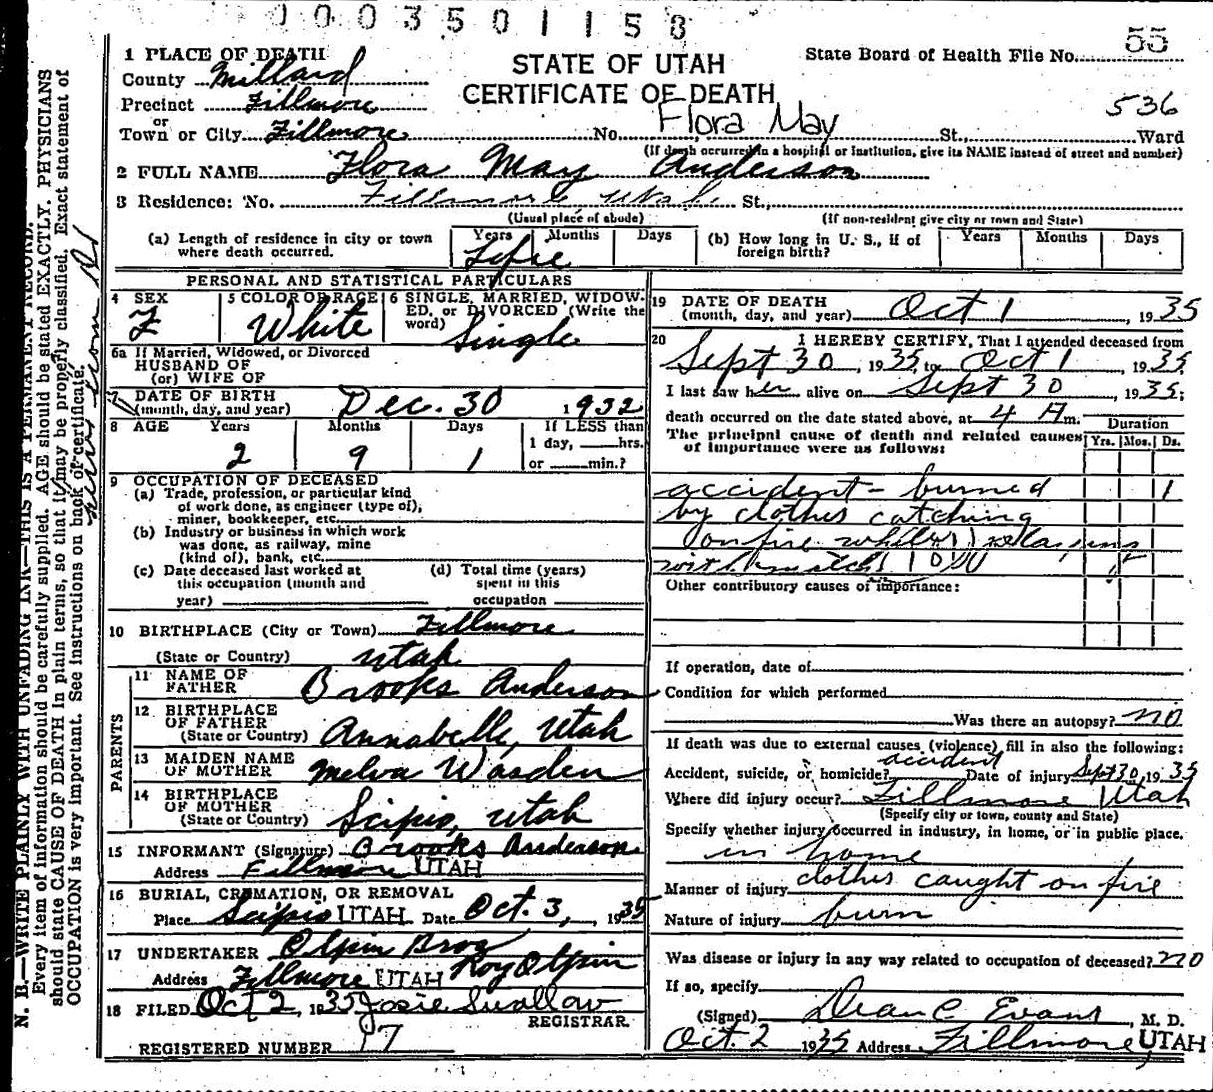 1003501158
55
State Board of Health File No.
STATE OF UTAH
CERTIFICATE OF DEATH
536
1 PLACE OF DEATH
County Millard
Precinct Fillmore
or
Town or City Fillmore No. Flora May St., Ward
(If death occurred in a hospital or institution, give its NAME instead of street and number)
2 FULL NAME Flora May Anderson
3 Residence: No. Fillmore, Utah St.,
(Usual place of abode) (If non-resident give city or town and State)
(a) Length of residence in city or town where death occurred. Years Months Days
Life
(b) How long in U. S., if of foreign birth? Years Months Days
PERSONAL AND STATISTICAL PARTICULARS
4 SEX F
5 COLOR OR RACE White
6 SINGLE, MARRIED, WIDOWED, or DIVORCED (Write the word) Single
6a If Married, Widowed, or Divorced
HUSBAND OF
(or) WIFE OF
7 DATE OF BIRTH
(month, day, and year) Dec. 30 1932
8 AGE Years Months Days If LESS than
2 9 1 1 day, hrs.
or min.?
9 OCCUPATION OF DECEASED
(a) Trade, profession, or particular kind
of work done, as engineer (type of),
miner, bookkeeper, etc.
(b) Industry or business in which work
was done, as railway, mine
(kind of), bank, etc.
(c) Date deceased last worked at
this occupation (month and
year)
(d) Total time (years)
spent in this
occupation
10 BIRTHPLACE (City or Town) Fillmore
(State or Country) Utah
PARENTS
11 NAME OF FATHER Brooks Anderson
12 BIRTHPLACE OF FATHER
(State or Country) Annabelle, Utah
13 MAIDEN NAME OF MOTHER Melva Wasden
14 BIRTHPLACE OF MOTHER
(State or Country) Scipio, Utah
15 INFORMANT (Signature) Brooks Anderson
Address Fillmore UTAH
16 BURIAL, CREMATION, OR REMOVAL
Place Scipio UTAH Date Oct. 3, 1935
17 UNDERTAKER Olpin Bros
Address Fillmore UTAH Roy Olpin
18 FILED Oct 2, 1935 Josie Swallow
REGISTRAR.
REGISTERED NUMBER 17
19 DATE OF DEATH
(month, day, and year) Oct 1, 1935
20 I HEREBY CERTIFY, That I attended deceased from
Sept 30, 1935, to Oct 1, 1935
I last saw her alive on Sept 30, 1935;
death occurred on the date stated above, at 4 A m.
The principal cause of death and related causes
of importance were as follows:
Duration
Yrs. Mos. Ds.
accident - burned 1
by clothes catching
on fire while playing
with matches
Other contributory causes of importance:
If operation, date of
Condition for which performed
Was there an autopsy? no
If death was due to external causes (violence) fill in also the following:
Accident, suicide, or homicide? accident Date of injury Sept 30, 1935
Where did injury occur? Fillmore Utah
(Specify city or town, county and State)
Specify whether injury occurred in industry, in home, or in public place.
in home
Manner of injury clothes caught on fire
Nature of injury burn
Was disease or injury in any way related to occupation of deceased? no
If so, specify
(Signed) Dean C Evans, M. D.
Oct. 2 1935 Address Fillmore, UTAH
N. B.—WRITE PLAINLY WITH UNFADING INK—THIS IS A PERMANENT RECORD.
Every item of information should be carefully supplied. AGE should be stated EXACTLY. PHYSICIANS
should state CAUSE OF DEATH in plain terms, so that it may be properly classified. Exact statement of
OCCUPATION is very important. See instructions on back of certificate.